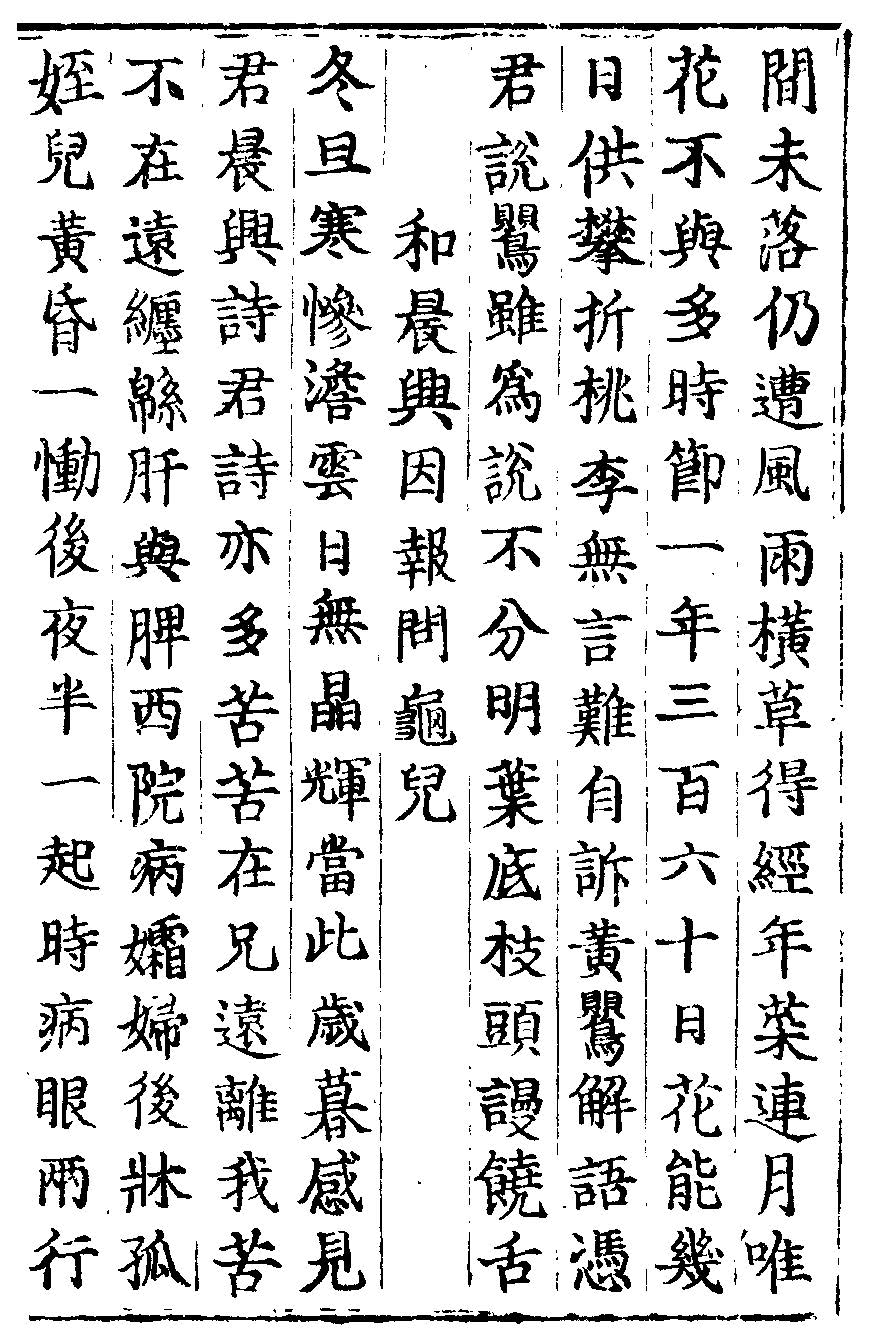 間未落仍遭風雨橫草得經年菜連月唯
花不與多時節一年三百六十日花能幾
日供攀折桃李無言難自訴黃鸎解語憑
君說鸎雖爲說不分明葉底枝頭謾饒舌
和晨興因報問龜兒
冬旦寒慘澹雲日無晶輝當此歲暮感見
君晨興詩君詩亦多苦苦在兄遠離我苦
不在遠纏緜肝與脾西院病孀婦後牀孤
姪兒黃昏一慟後夜半一起時病眼兩行